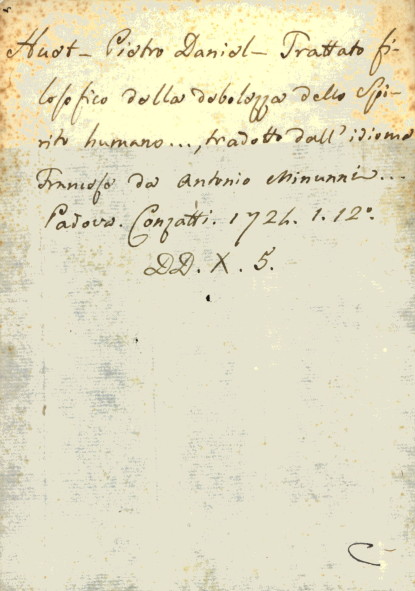 Huet - Pietro Daniel - Trattato fi-
losofico della debolezza dello Spi-
rito humano..., tradotto dall' idioma
Francese da Antonio Minunni...
Padova. Conzatti. 1724. 1. 12°.
DD. X. 5.
C-